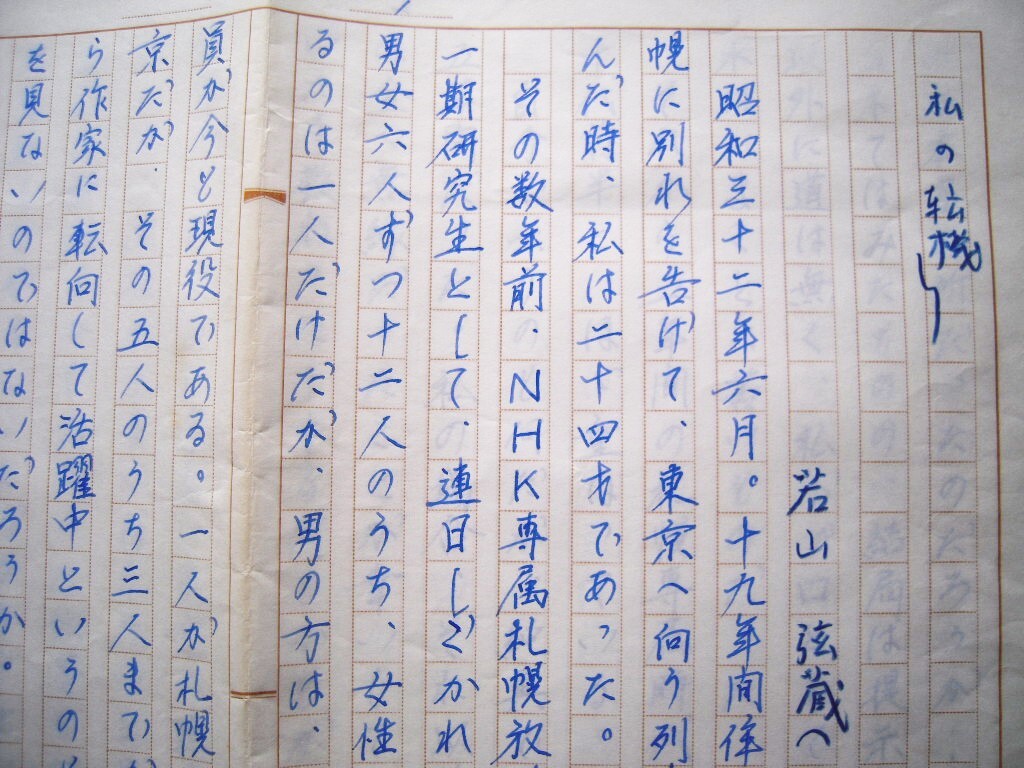 私の転機
若山弦蔵へ
昭和三十二年六月。十九年間住
幌に別れを告げて、東京へ向う列
んだ時、私は二十四才であった。
その数年前、NHK専属札幌放
一期研究生として、連日しごかれ
男女六人ずつ十二人のうち、女性
るのは一人だけだが、男の方は、
員が今も現役である。一人が札幌
京だが、その五人のうち三人まで
ら作家に転向して活躍中というの
を見ないのではないだろうか。